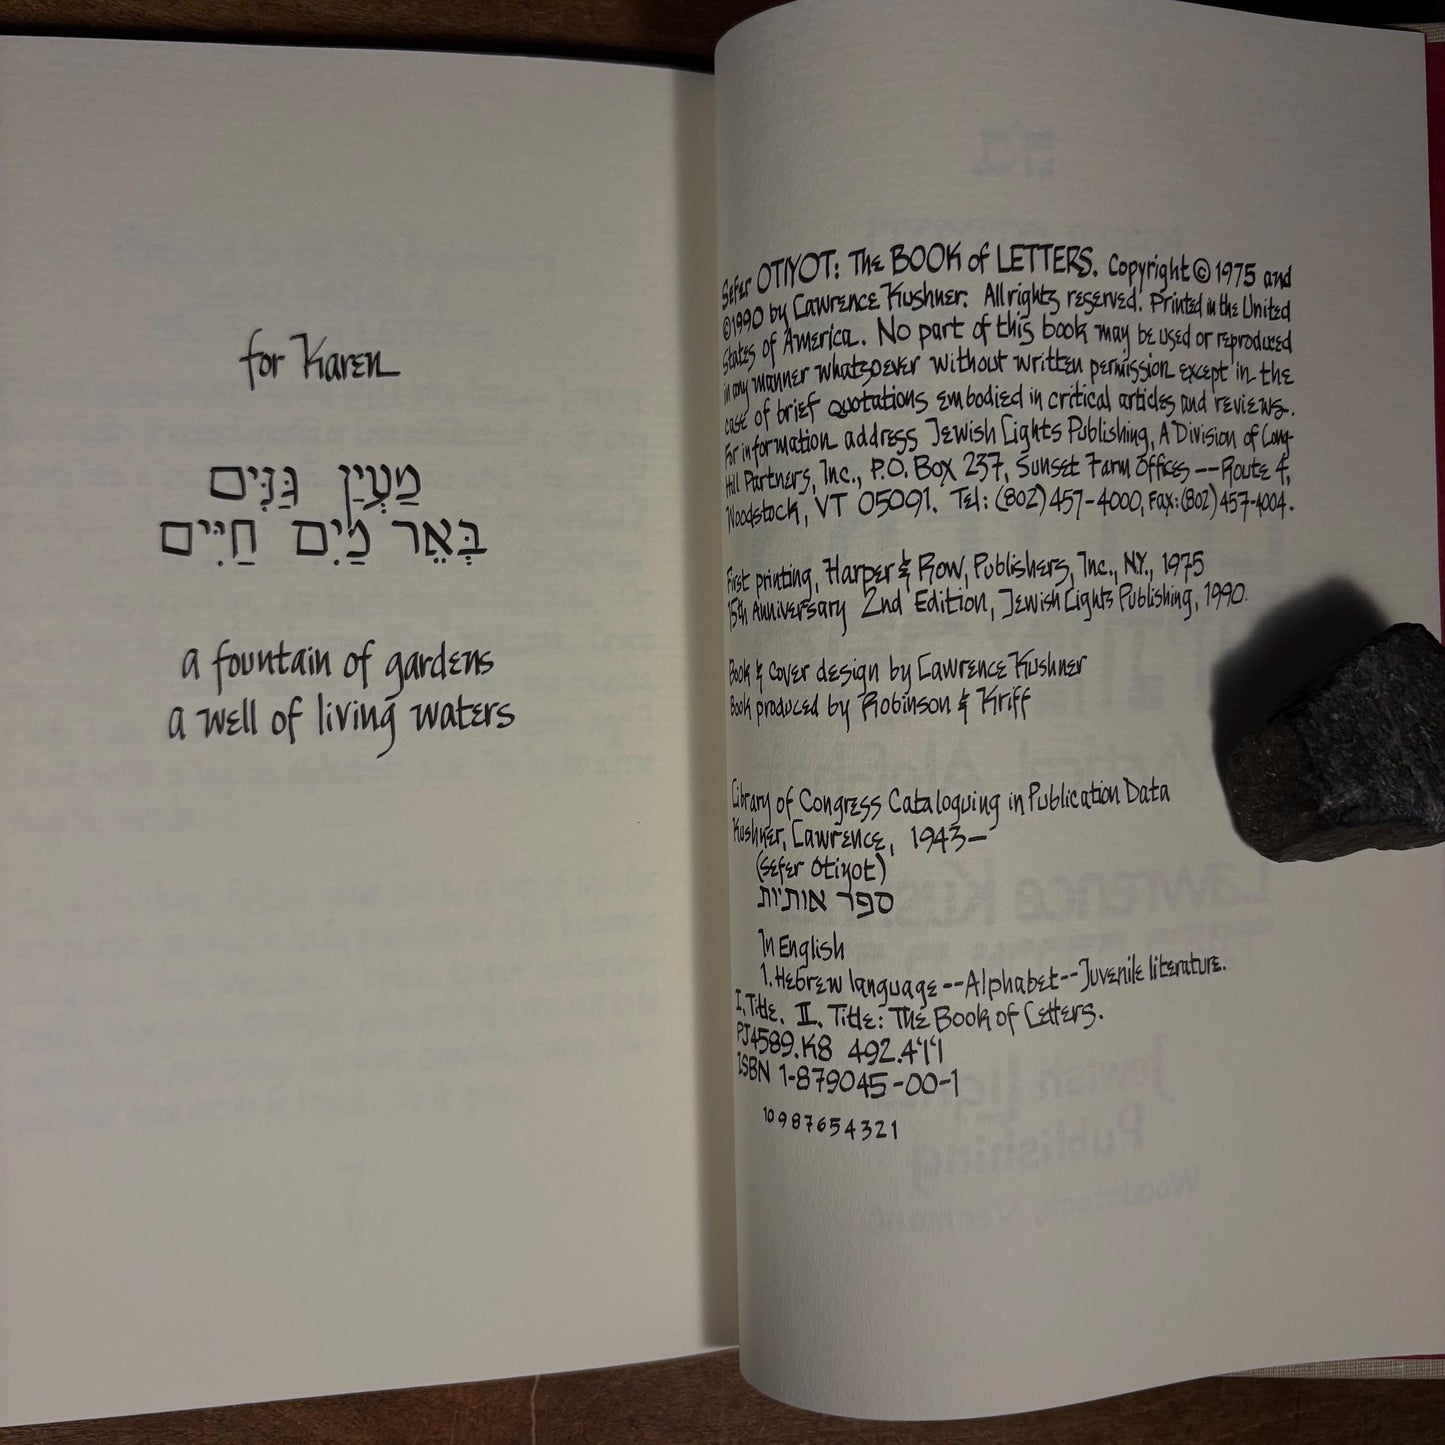 for Karen
מַעְיַן גַּנִּים
בְּאֵר מַיִם חַיִּים
a fountain of gardens
a well of living waters
Sefer OTIYOT: The BOOK of LETTERS. Copyright © 1975 and
©1990 by Lawrence Kushner. All rights reserved. Printed in the United
States of America. No part of this book may be used or reproduced
in any manner whatsoever without written permission except in the
case of brief quotations embodied in critical articles and reviews.
For information address Jewish Lights Publishing, A Division of Long-
Hill Partners, Inc., P.O. Box 237, Sunset Farm Offices -- Route 4,
Woodstock, VT 05091. Tel: (802) 457-4000, Fax: (802) 457-4004.
First printing, Harper & Row, Publishers, Inc., N.Y., 1975
15th Anniversary 2nd Edition, Jewish Lights Publishing, 1990.
Book & cover design by Lawrence Kushner
Book produced by Robinson & Kriff
Library of Congress Cataloguing in Publication Data
Kushner, Lawrence, 1943–
(Sefer Otiyot)
ספר אותיות
In English
1. Hebrew language -- Alphabet -- Juvenile literature.
I. Title. II. Title: The Book of Letters.
PJ4589.K8 492.4'1'1
ISBN 1-879045-00-1
10 9 8 7 6 5 4 3 2 1